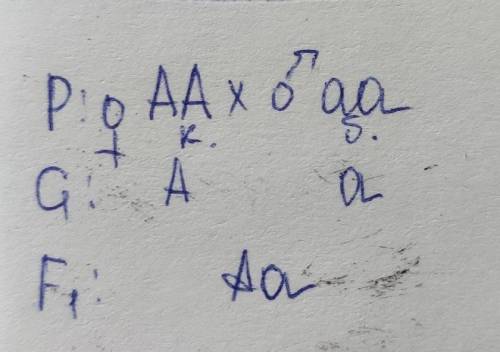 P: ♀ AA x ♂ aa
к. б.
G: A a
F₁: Aa